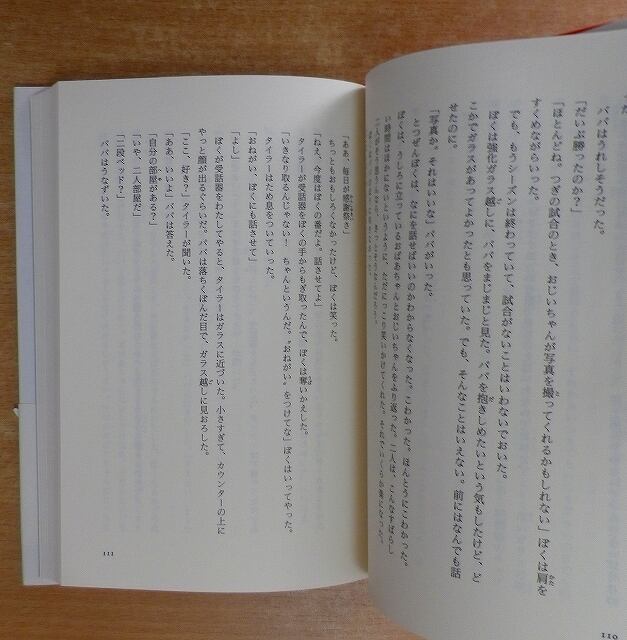 た。
パパはうれしそうだった。
「だいぶ勝ったのか？」
「ほとんどね。つぎの試合のとき、おじいちゃんが写真を撮ってくれるかもしれない」ぼくは肩を
すくめながらいった。
でも、もうシーズンは終わっていて、試合がないことはいわないでおいた。
ぼくは強化ガラス越しに、パパをまじまじと見た。パパを抱きしめたいという気もしたけど、ど
こかでガラスがあってよかったとも思っていた。でも、そんなことはいえない。前にはなんでも話
せたのに。
「写真か。それはいいな」パパがいった。
とつぜんぼくは、なにを話せばいいのかわからなくなった。こわかった。ほんとうにこわかった。
ぼくは、うしろに立っているおばあちゃんとおじいちゃんをふり返った。二人は、こんなすばらし
い時間はほかにないというように、ただにっこり笑いかけてくれた。それでいくらか楽になった。
110
「ああ、毎日が感謝祭さ」
ちっともおもしろくなかったけど、ぼくは笑った。
「ねえ、今度はぼくの番だよ。話させてよ」
タイラーが受話器をぼくの手からもぎ取ったんで、ぼくは奪いかえした。
「いきなり取るんじゃない！　ちゃんというんだ。〝おねがい〟をつけてな」ぼくはいってやった。
タイラーはため息をついていった。
「おねがい、ぼくにも話させて」
「よし」
ぼくが受話器をわたしてやると、タイラーはガラスに近づいた。小さすぎて、カウンターの上に
やっと顔が出るぐらいだ。パパは落ちくぼんだ目で、ガラス越しに見おろした。
「ここ、好き？」タイラーが聞いた。
「ああ、いいよ」パパは答えた。
「自分の部屋がある？」
「いや、二人部屋だ」
「二段ベッド？」
パパはうなずいた。
111